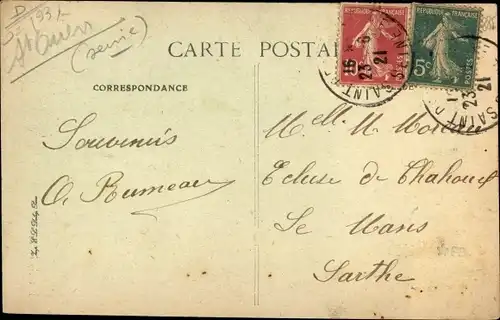 D
St Ouen
(seine)
CARTE POSTALE
REPUBLIQUE FRANÇAISE
REPUBLIQUE FRANÇAISE
5c
POSTES
23
21
SEINE
SAINT
23
21
CORRESPONDANCE
Souvenirs
O. Rumeau
Melle M. Moreau
Ecluse de Chahoué
Le Mans
Sarthe